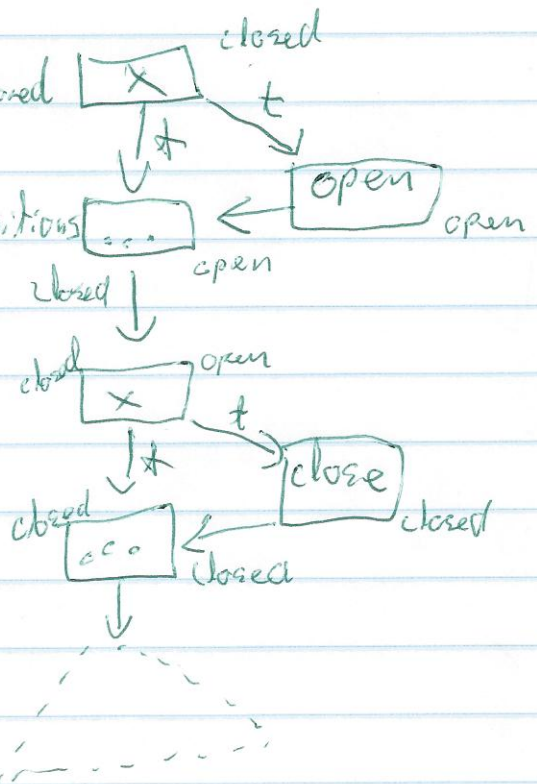 closed
x
t
t
open
open
...
open
closed
closed
open
x
t
t
close
closed
closed
...
closed